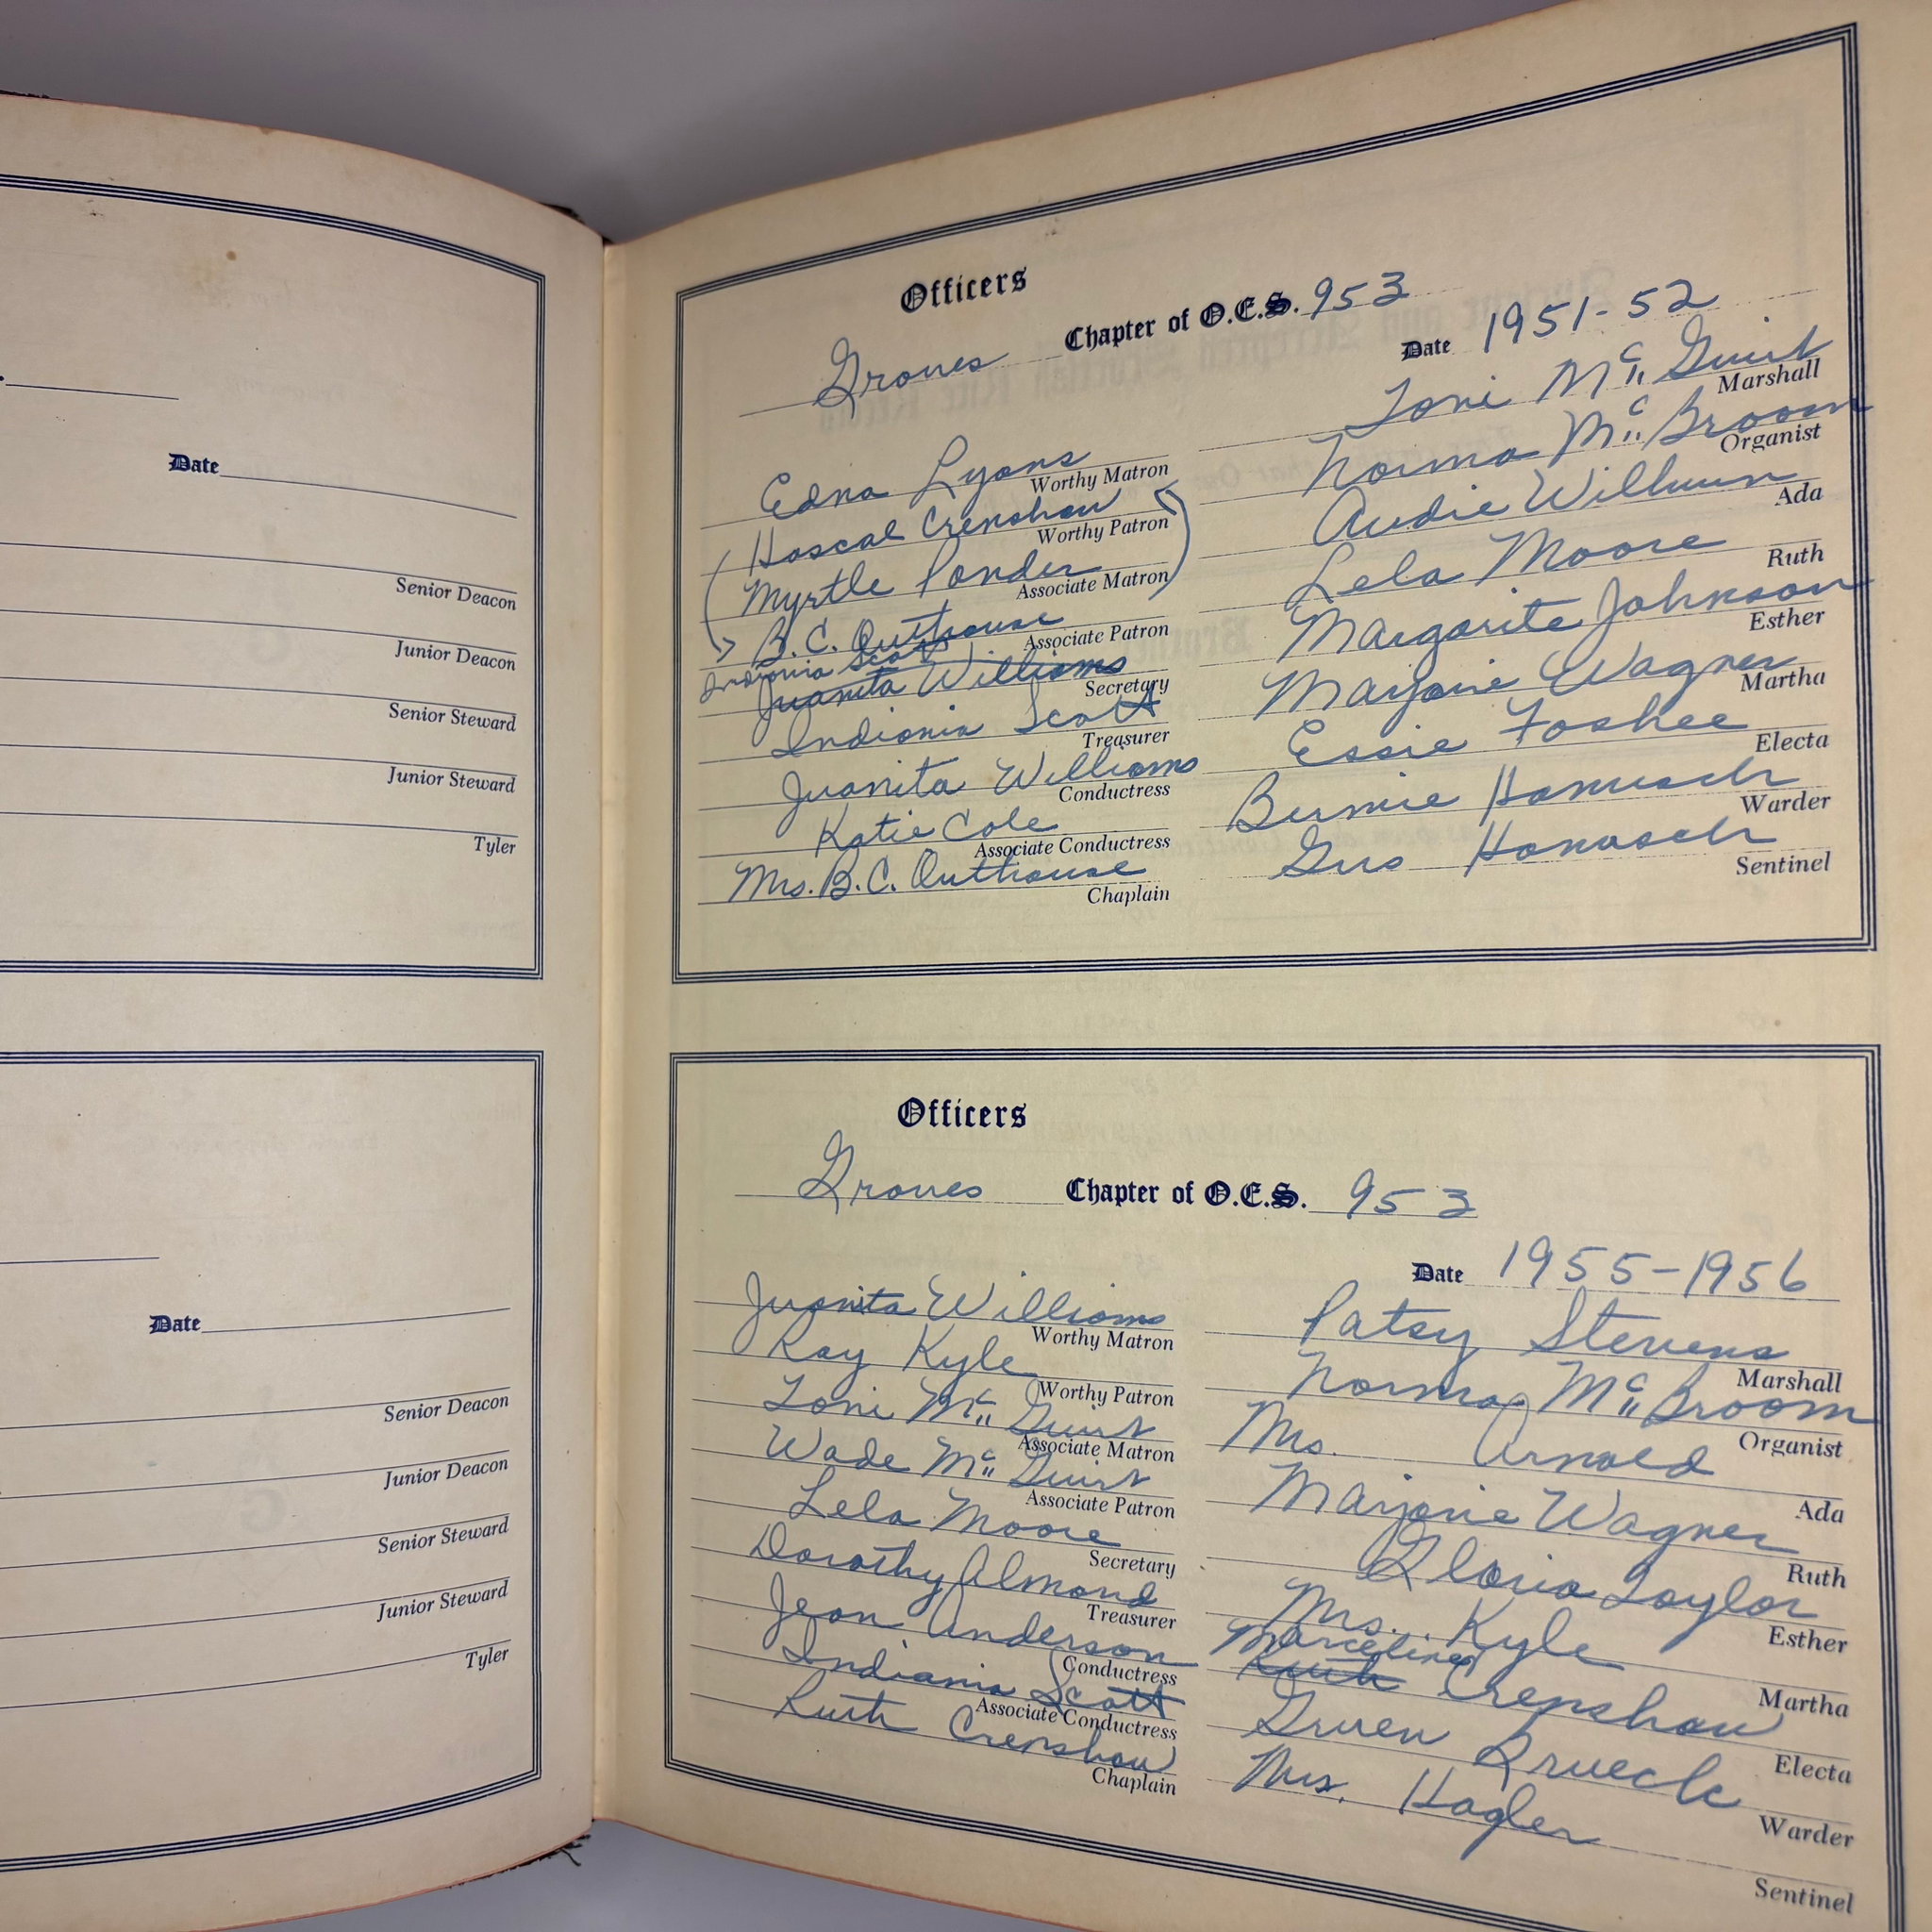 Date
Senior Deacon
Junior Deacon
Senior Steward
Junior Steward
Tyler
Date
Senior Deacon
Junior Deacon
Senior Steward
Junior Steward
Tyler
Officers
Groves Chapter of O.E.S. 953
Date 1951-52
Edna Lyons
Worthy Matron
Hascal Crenshaw
Worthy Patron
Myrtle Ponder
Associate Matron
B.C. Outhouse
Associate Patron
Indionia Scott
Juanita Williams
Secretary
Indionia Scott
Treasurer
Juanita Williams
Conductress
Katie Cole
Associate Conductress
Mrs. B.C. Outhouse
Chaplain
Toni McGuirt
Marshall
Norma McBroom
Organist
Audie
Ada
Lela Moore
Ruth
Margarite Johnson
Esther
Marjorie Wagner
Martha
Essie Foshee
Electa
Hanusch
Warder
Gus Hanusch
Sentinel
Officers
Groves Chapter of O.E.S. 953
Date 1955-1956
Juanita Williams
Worthy Matron
Ray Kyle
Worthy Patron
Toni McGuirt
Associate Matron
Wade McGuirt
Associate Patron
Lela Moore
Secretary
Dorothy Almond
Treasurer
Jean Anderson
Conductress
Indiania Scott
Associate Conductress
Ruth Crenshaw
Chaplain
Patsy Stevens
Marshall
Norma McBroom
Organist
Mrs. Arnold
Ada
Marjorie Wagner
Ruth
Gloria Taylor
Esther
Mrs. Kyle
Martha
Marceline
Ruth Crenshaw
Electa
Gruen Brueck
Warder
Mrs. Hagler
Sentinel